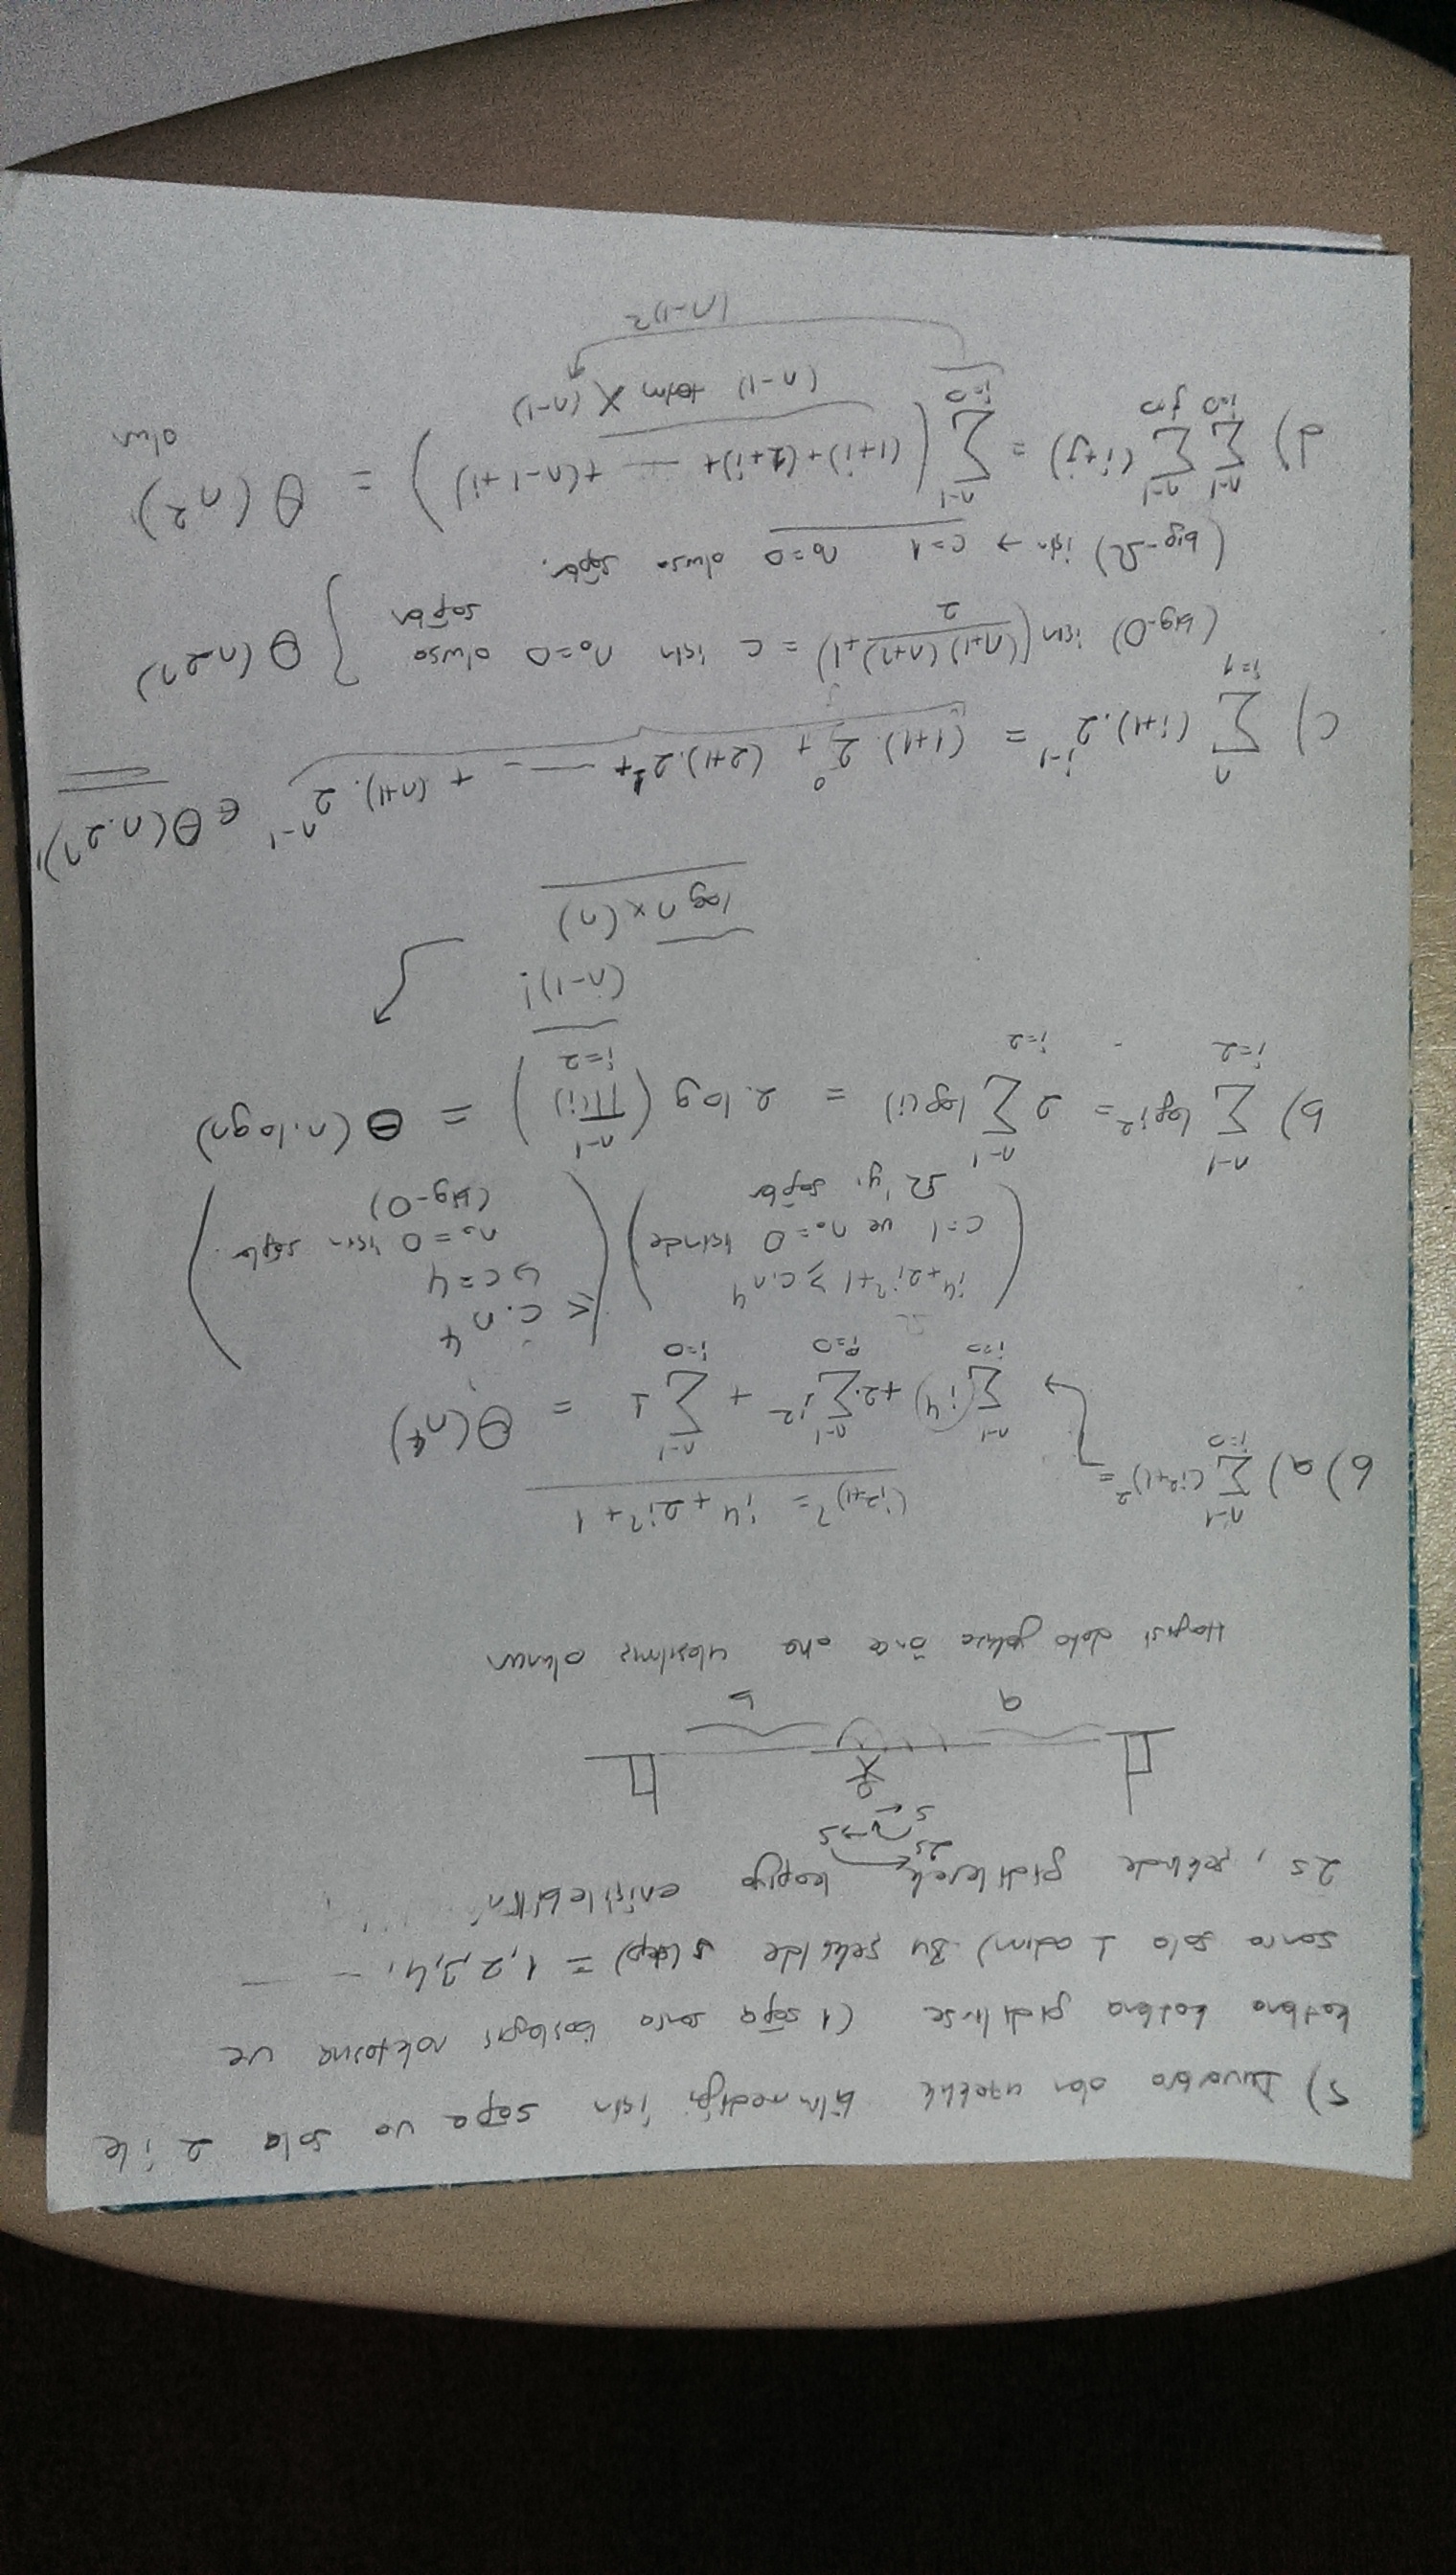 5) Duvarlara olan uzaklık bilinmediği için sağa ve sola 2 ile
katlana katlana gidilirse. (1 sağa sonra başlangıç noktasına ve
sonra sola 1 adım) Bu şekilde s(step) = 1,2,3,4, - -
2s, şeklinde gidilerek kapıya erişilebilir
2s
s
s
a
b
Hangisi daha yakınsa önce ona ulaşılmış olunur
6) a) \sum_{i=0}^{n-1} (i²+1)² =
(i²+1)² = i⁴ + 2i² + 1
\sum_{i=0}^{n-1} i⁴ + 2.\sum_{i=0}^{n-1} i² + \sum_{i=0}^{n-1} 1 = Θ(n⁴)
( i⁴+2i²+1 ≥ c.n⁴
c=1 ve n₀=0 içinde
Ω'yı sağlar )
( ≤ c.n⁴
↳ c=4
n₀=0 için sağlar.
(big-O) )
b) \sum_{i=2}^{n-1} log i² = 2 \sum_{i=2}^{n-1} log(i) = 2.log ( \prod_{i=2}^{n-1} (i) ) = Θ(n.logn)
(n-1)!
logn x (n)
c) \sum_{i=1}^{n} (i+1).2^{i-1} = (1+1).2⁰ + (2+1).2¹ + -- + (n+1).2^{n-1} ∈ Θ(n.2ⁿ)
(big-O) için ( \frac{(n+1)(n+2)}{2} +1) = c için n₀=0 olursa
sağlar } Θ(n2ⁿ)
(big-Ω) için → c=1 n₀=0 olursa sağlar.
d) \sum_{i=0}^{n-1} \sum_{j=0}^{n-1} (i+j) = \sum_{i=0}^{n-1} ( (1+i)+(2+i)+ -- +(n-1+i) ) = Θ(n²)
olur
(n-1) terim X (n-1)
(n-1)²